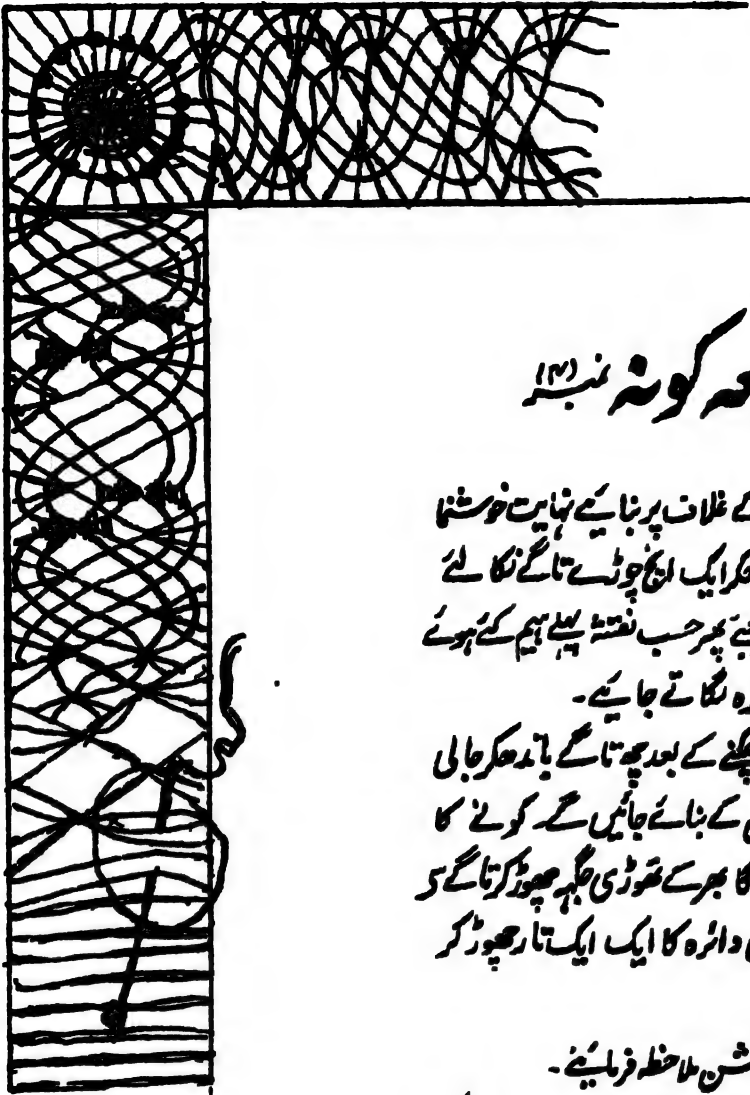 کونہ نمبر (۴)
غلاف پر بنائیے نہایت خوشنما
ایک انچ چوڑے تاگے نکالئے
پھر حسب نقشہ پہلے ہیم کئے ہوئے
لگاتے جائیے۔
کے بعد چھ تاگے باندھکر جالی
کے بنائے جائیں گے۔ کونے کا
بھر کے تھوڑی جگہ چھوڑ کر تاگے
دائرہ کا ایک ایک تار چھوڑ کر
ملاحظہ فرمائیے۔